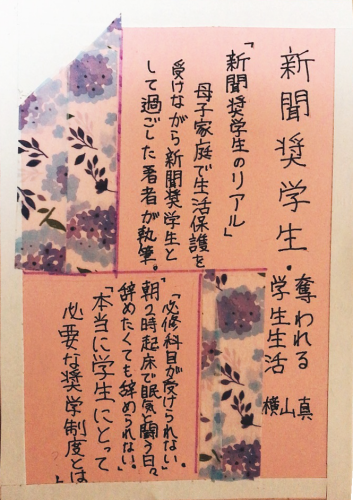 新聞奨学生・
奪われる
学生生活
横山真
「新聞奨学生のリアル」
母子家庭で生活保護を
受けながら新聞奨学生と
して過ごした著者が執筆。
「必修科目が受けられない」
朝2時起床で眠気と闘う日々
辞めたくても辞められない。
「本当に学生にとって
必要な奨学制度とは」